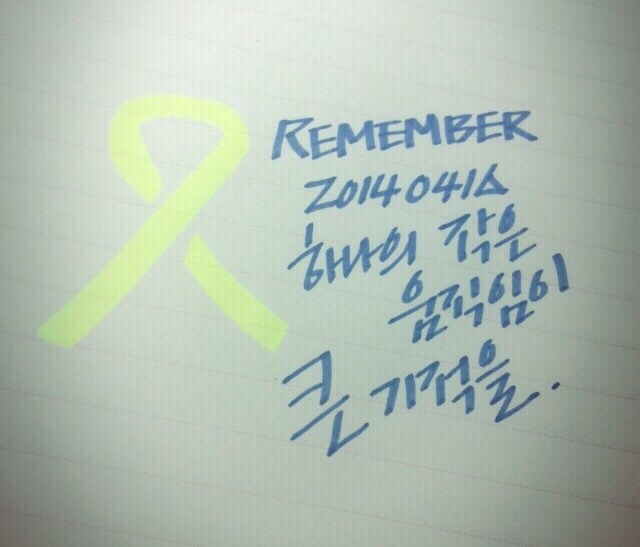 REMEMBER
2014 0416
하나의 작은
움직임이
큰 기적을.